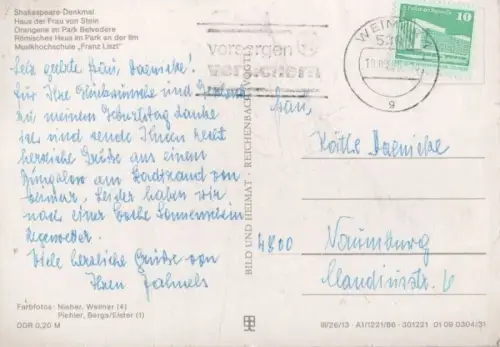 Shakespeare-Denkmal
Haus der Frau von Stein
Orangerie im Park Belvedere
Römisches Haus im Park an der Ilm
Musikhochschule „Franz Liszt"
WEIMAR
10
vorsorgen
versichern
9
Sehr geehrte Frau Daemeke!
Für Ihre Glückwünsche und
zu meinem Geburtstag danke
ich und sende Ihnen recht
herzliche Grüße aus einem
Bungalow am Stadtrand von
Weimar. Leider haben wir
nach einer Woche Sonnenschein
Regenwetter.
Viele herzliche Grüße von
Ihren
Frau
Käthe Daemeke
4800 Naumburg
Claudiusstr. 6
BILD UND HEIMAT · REICHENBACH (VOGTL)
Farbfotos: Nieber, Weimar (4)
Pichler, Berga/Elster (1)
DDR 0,20 M
III/26/13 · A1/1221/86 · 301221 01 09 0304/31